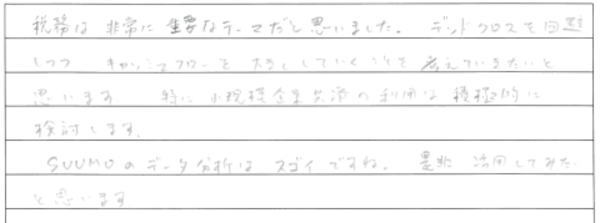 税務は非常に重要なテーマだと思いました。 デッドクロスを回避
しつつ キャッシュフローを大きくしていくことを考えていきたいと
思います。 特に小規模企業共済の利用は積極的に
検討します。
SUUMOのデータ分析はスゴイですね。 是非活用してみたい
と思います